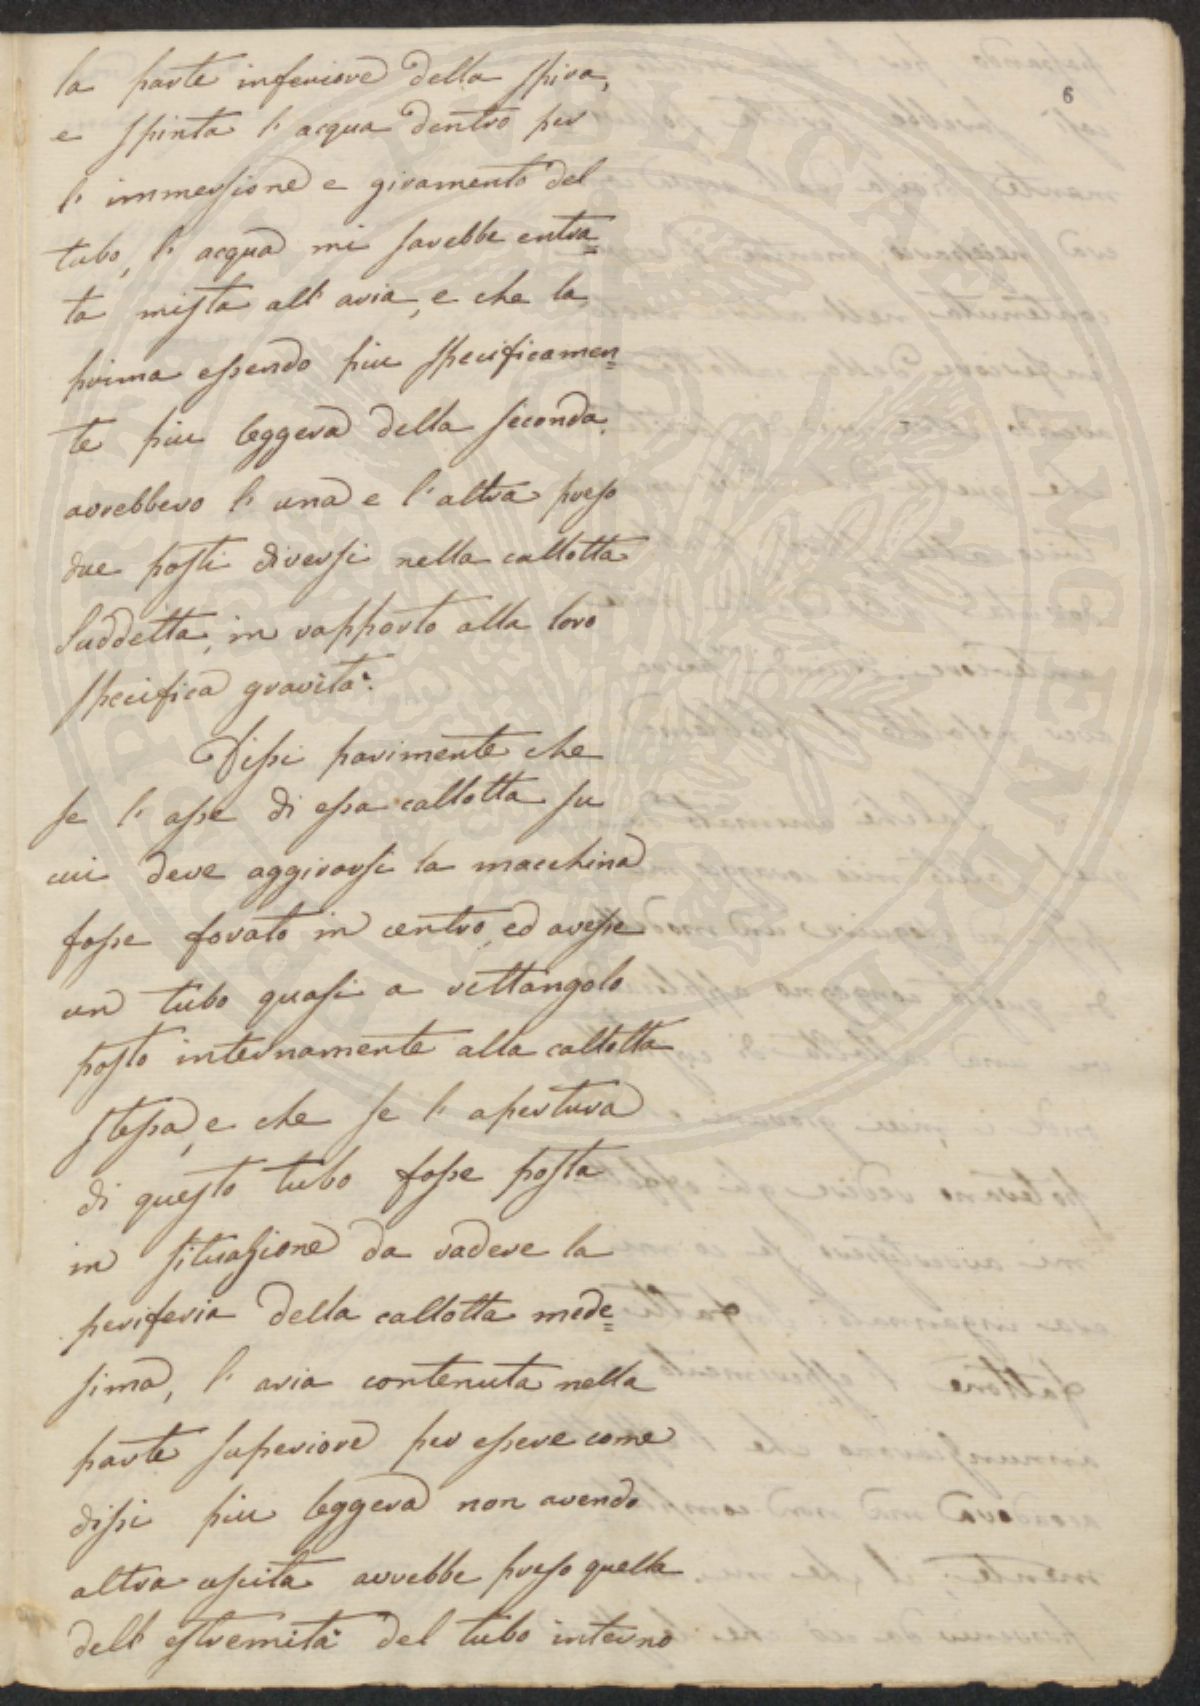 6
la parte inferiore della spira,
e spinta l'acqua dentro per
l'immersione e giramento del
tubo, l'acqua mi sarebbe entra=
ta mista all'aria, e che la
prima essendo piu specificamen=
te piu leggera della seconda,
avrebbero l'una e l'altra preso
due posti diversi nella callotta
suddetta, in rapporto alla loro
specifica gravità.
Dissi parimente che
se l'asse di essa callotta su
cui deve aggirarsi la macchina
fosse forato in centro, ed avesse
un tubo quasi a rettangolo
posto internamente alla callotta
stessa, e che se l'apertura
di questo tubo fosse posta
in situazione da radere la
periferia della callotta mede=
sima, l'aria contenuta nella
parte superiore per essere come
dissi piu leggera non avendo
altra uscita avrebbe preso quella
dell'estremità del tubo interno